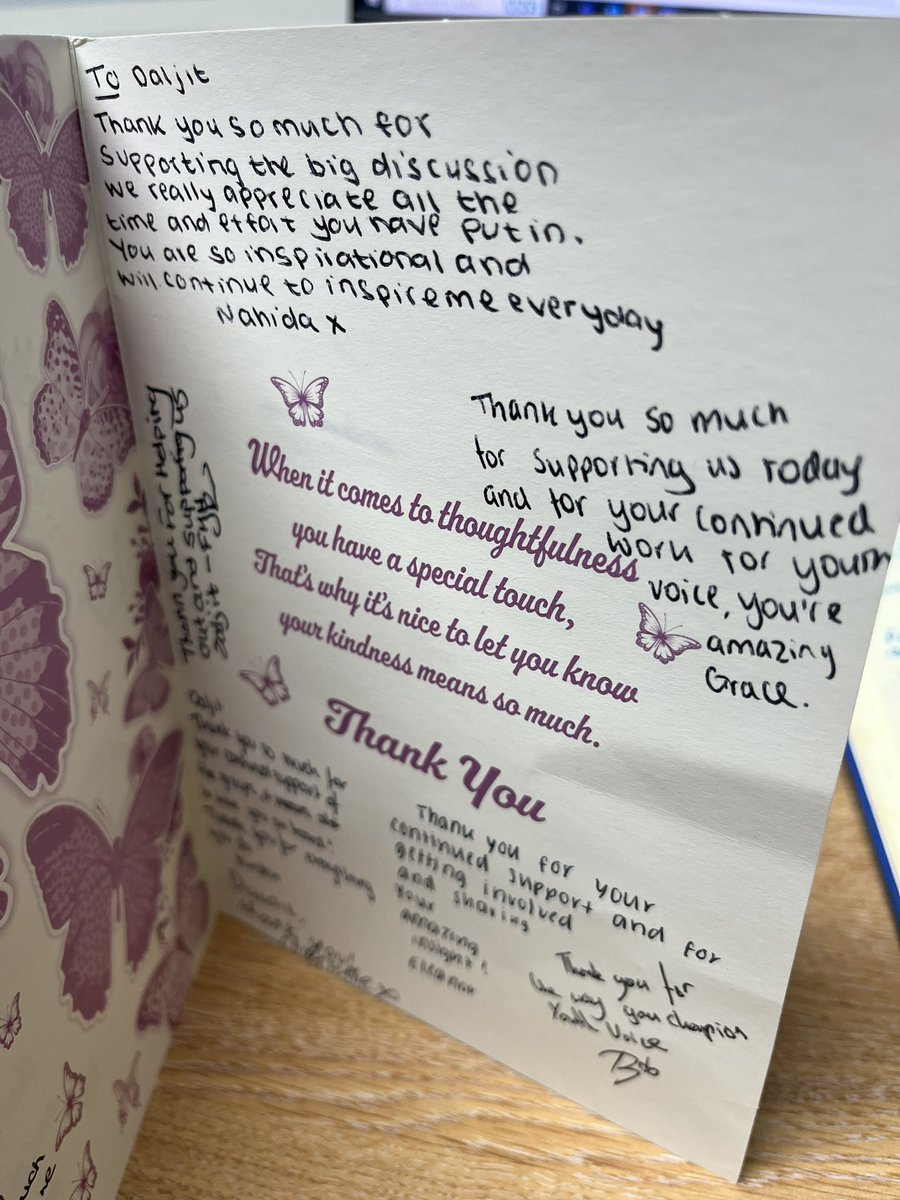 To Daljit
Thank you so much for
supporting the big discussion
we really appreciate all the
time and effort you have put in.
You are so inspirational and
will continue to inspire me everyday
Nahida x
Thank you so much
for supporting us today
and for your continued
work for youth
voice, you're
amazing
Grace.
Thank you for Helping
out and supporting us
When it comes to thoughtfulness
you have a special touch,
That's why it's nice to let you know
your kindness means so much.
Thank You
Daljit
Thank you so much for
your continued support of
the group, it means
Thank you for everything
you do
Thank you for your
continued support and for
getting involved
and sharing
your
amazing
insight!
Eleanor
Thank you for
the way you champion
Youth Voice
Bob